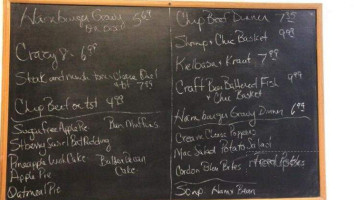 Hamburger Gravy 5.99
Crazy 8's 6.99
Chip Beef on tst 4.99
Sugarfree Apple Pie Bran Muffins
Stberry Swirl Bed Pudding
Pineapple Cake Butter Pecan
Apple Pie Cake
Oatmeal Pie
Chip Beef Dinner 7.25
Shrimp + Chic Basket 9.99
Kelbasa + Kraut 7.95
Craft Beer Battered Fish 9.99
+ Chic Basket
Hamburger Gravy Dinner 6.99
Cream Cheese Poppers
Mac Salad Potato Salad
Cordon Bleu Bites Potatoes
Soup Ham + Bean